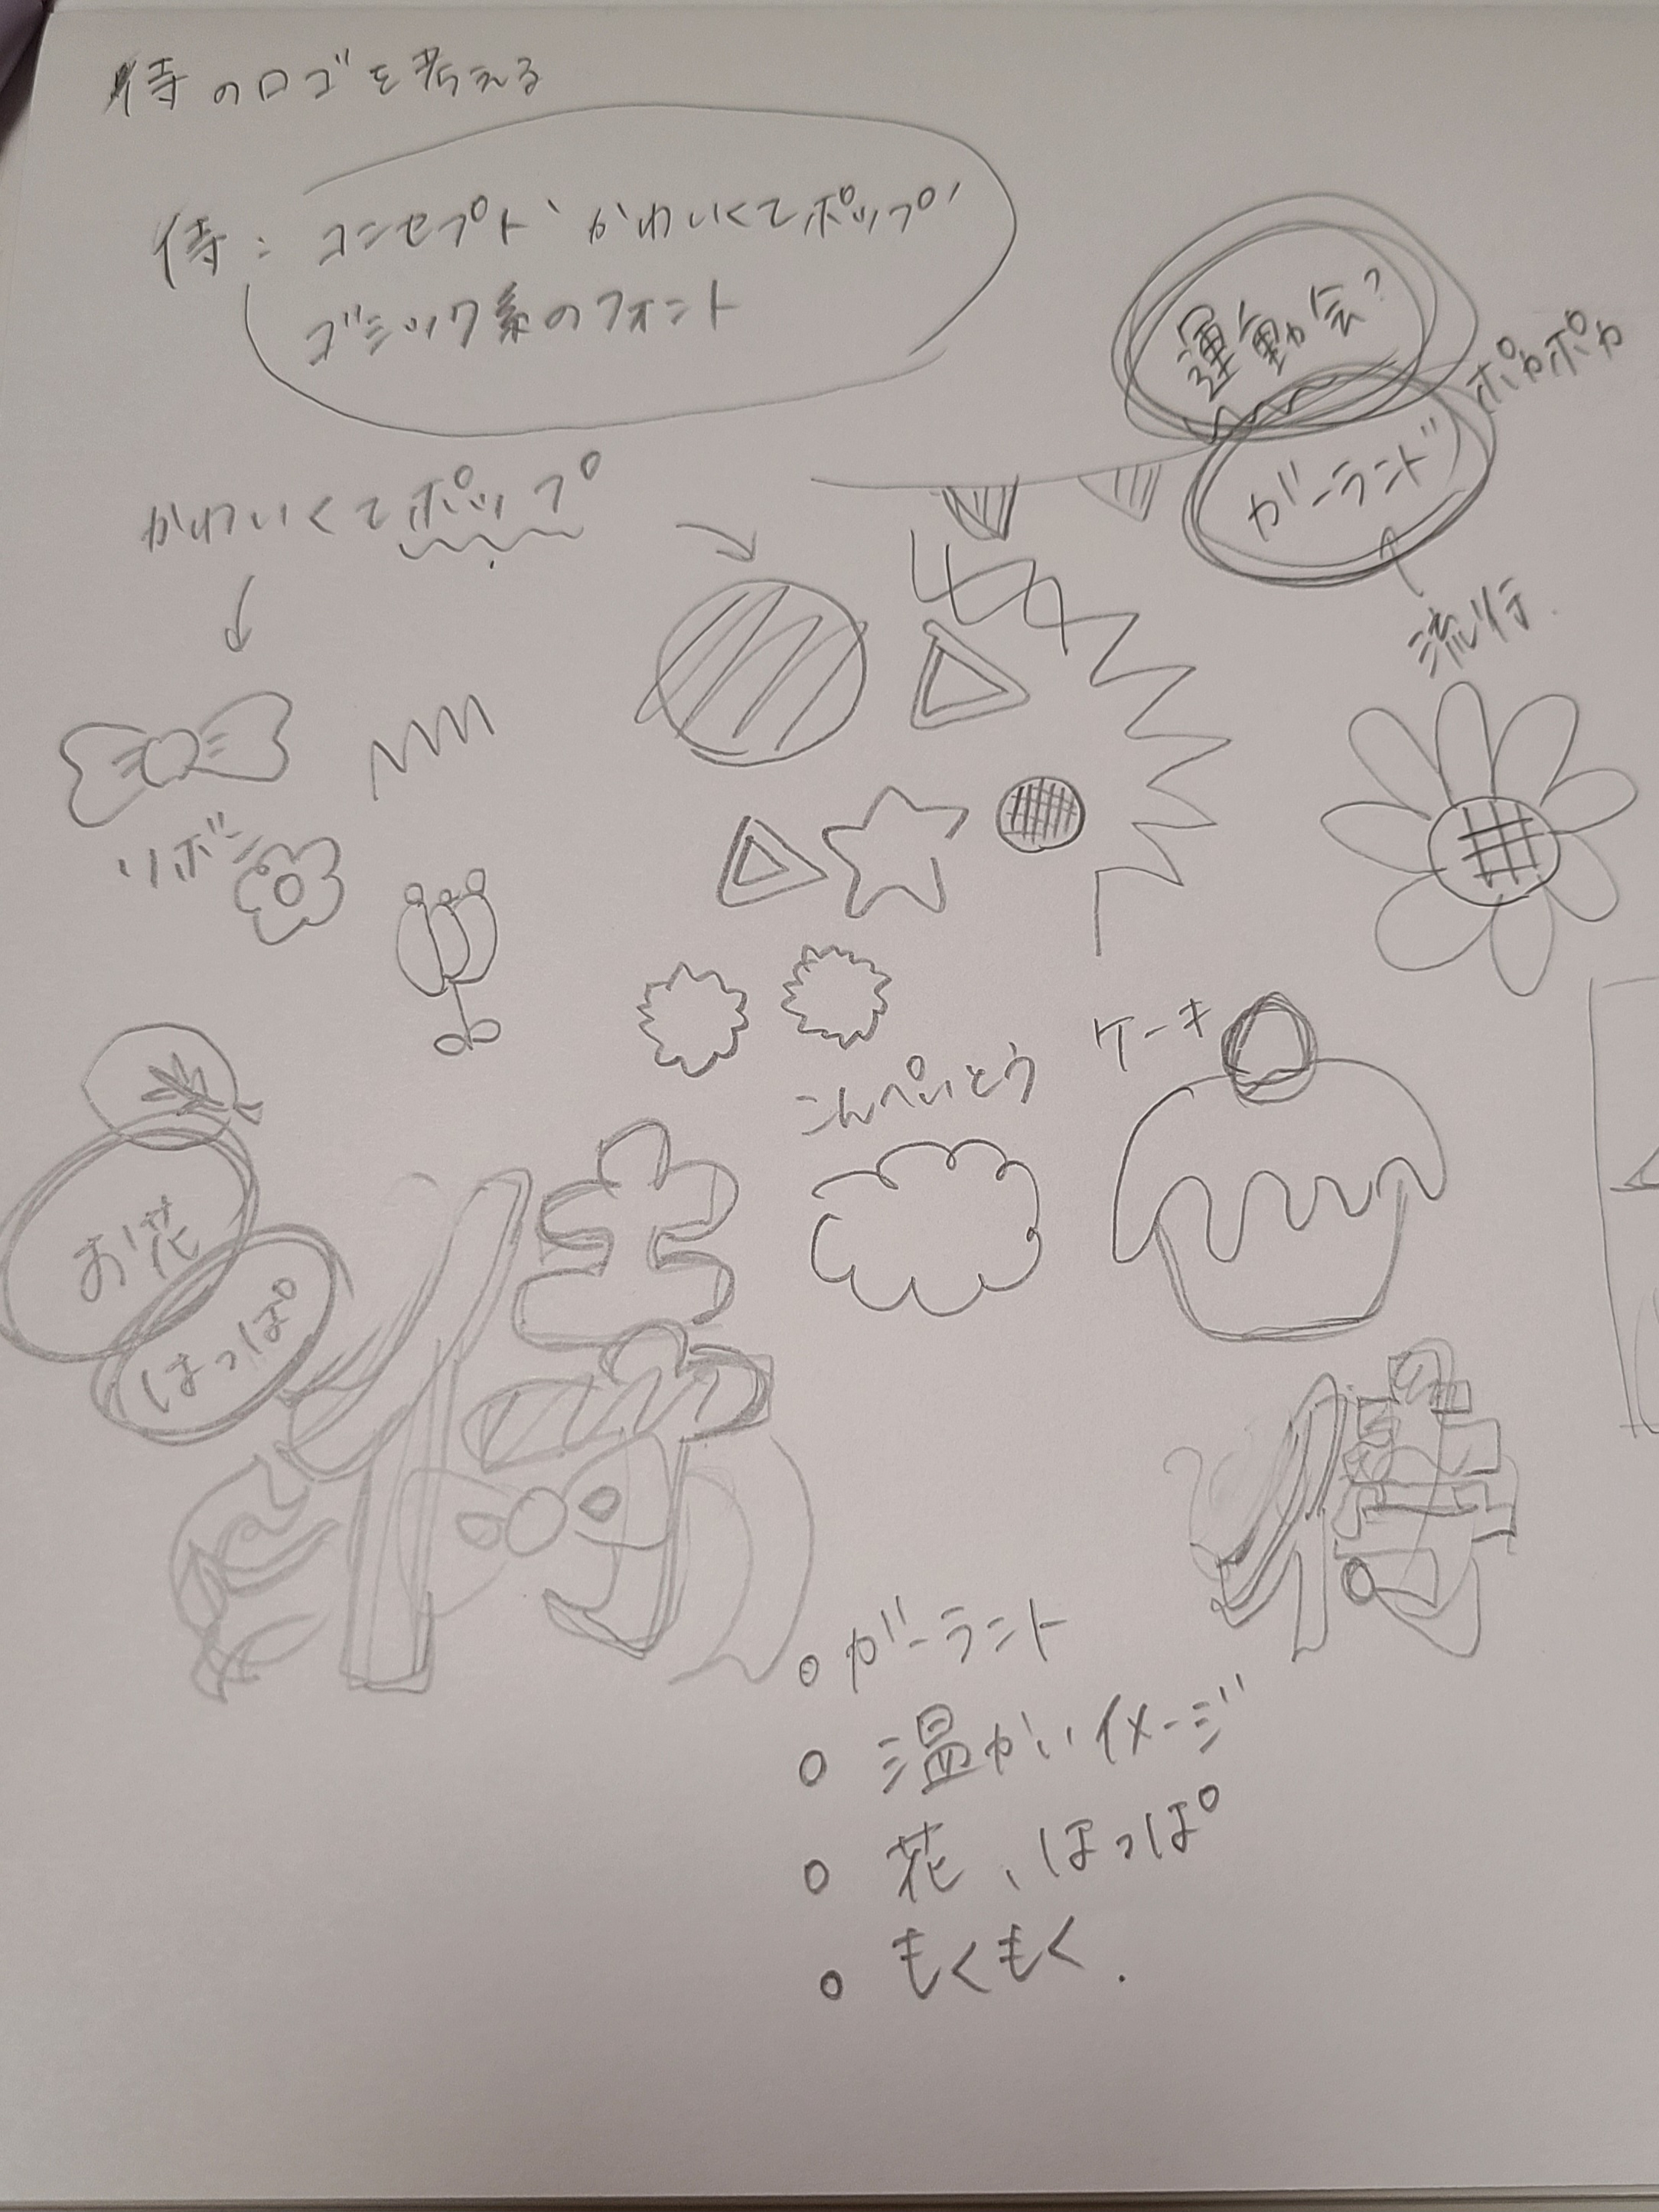 待のロゴを考える
待：コンセプト`かわいくてポップ'
ゴシック系のフォント
運動会?
ポカポカ
ガーランド
流行.
かわいくてポップ
リボン
こんぺいとう
ケーキ
お花
はっぱ
待
待
○ ガーラント
○ 温かいイメージ
○ 花、はっぱ
○ もくもく.